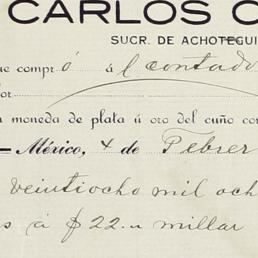 CARLOS C
SUCR. DE ACHOTEGUI
ue compró á al contado
or
moneda de plata ú oro del cuño cor
México, 4 de Febrer
veintiocho mil och
s á $22.00 millar